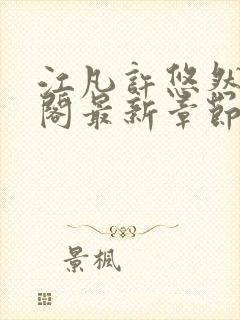 江凡許悠然
閣最新章節
景楓